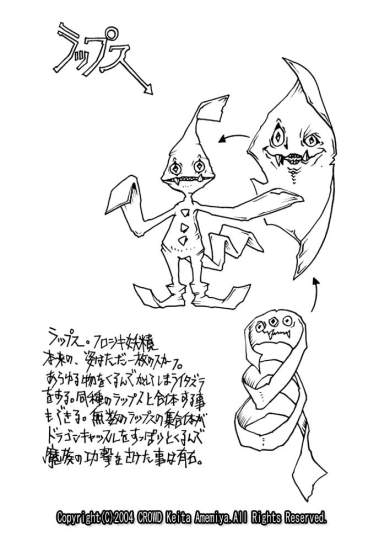 ラップス
ラップス。フロシキ妖精
本来の、姿はただの一枚のスカーフ。
あらゆる物をくるんでかくしてしまうイタズラ
をする。同種のラップスと合体する事
もできる。無数のラップスの集合体が
ドラゴンキャッスルをすっぽりとくるんで
魔族の攻撃をさけた事は有名。
Copyright(C)2004 CROWD Keita Amemiya.All Rights Reserved.